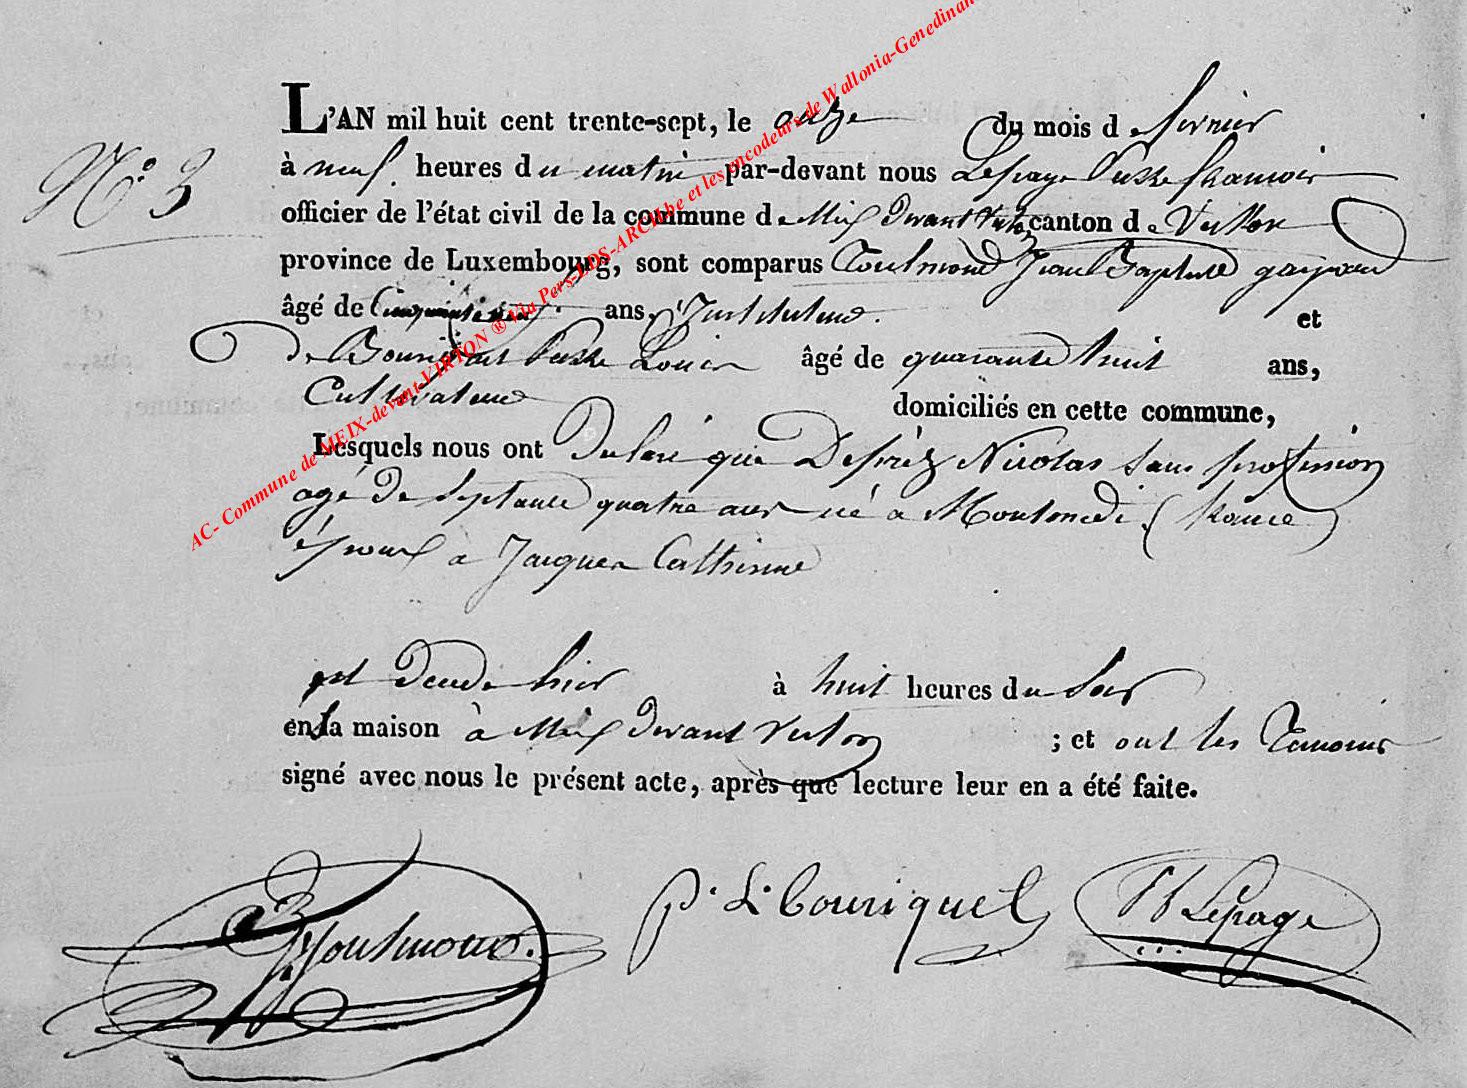 N.° 3
L'AN mil huit cent trente-sept, le onze du mois de fevrier
à neuf heures du matin par-devant nous Lepage Pierre francois
officier de l'état civil de la commune de Meix Devant Virton canton de Virton
province de Luxembourg, sont comparus Toulmond Jean Baptiste
âgé de ans, Instituteur. et
Pierre Louis âgé de quarante huit ans,
Cultivateur domiciliés en cette commune,
Lesquels nous ont Declaré que Deprèz Nicolas sans profession
agé de septante quatre ans né a Montmedi (france)
époux à Jacques Catherine
est decede hier à huit heures du soir
en sa maison à Meix devant Virton ; et ont les Temoins
signé avec nous le présent acte, après que lecture leur en a été faite.
Toulmond. P. L. Bouriquet PF Lepage
AC- Commune de MEIX-devant-VIRTON ® Via Pers-LDS-ARCH.be et les encodeurs de Wallonia-Genedinan